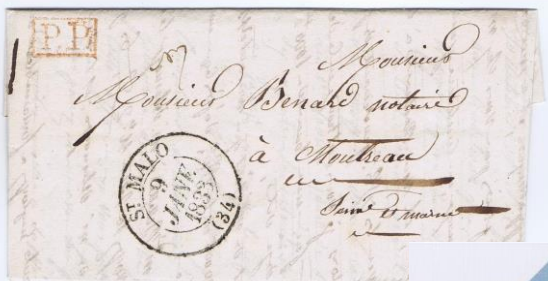 P.P.
Monsieur
Monsieur Benard notaire
à Montreau
Seine et marne
ST MALO
9
JANV.
1833
(34)